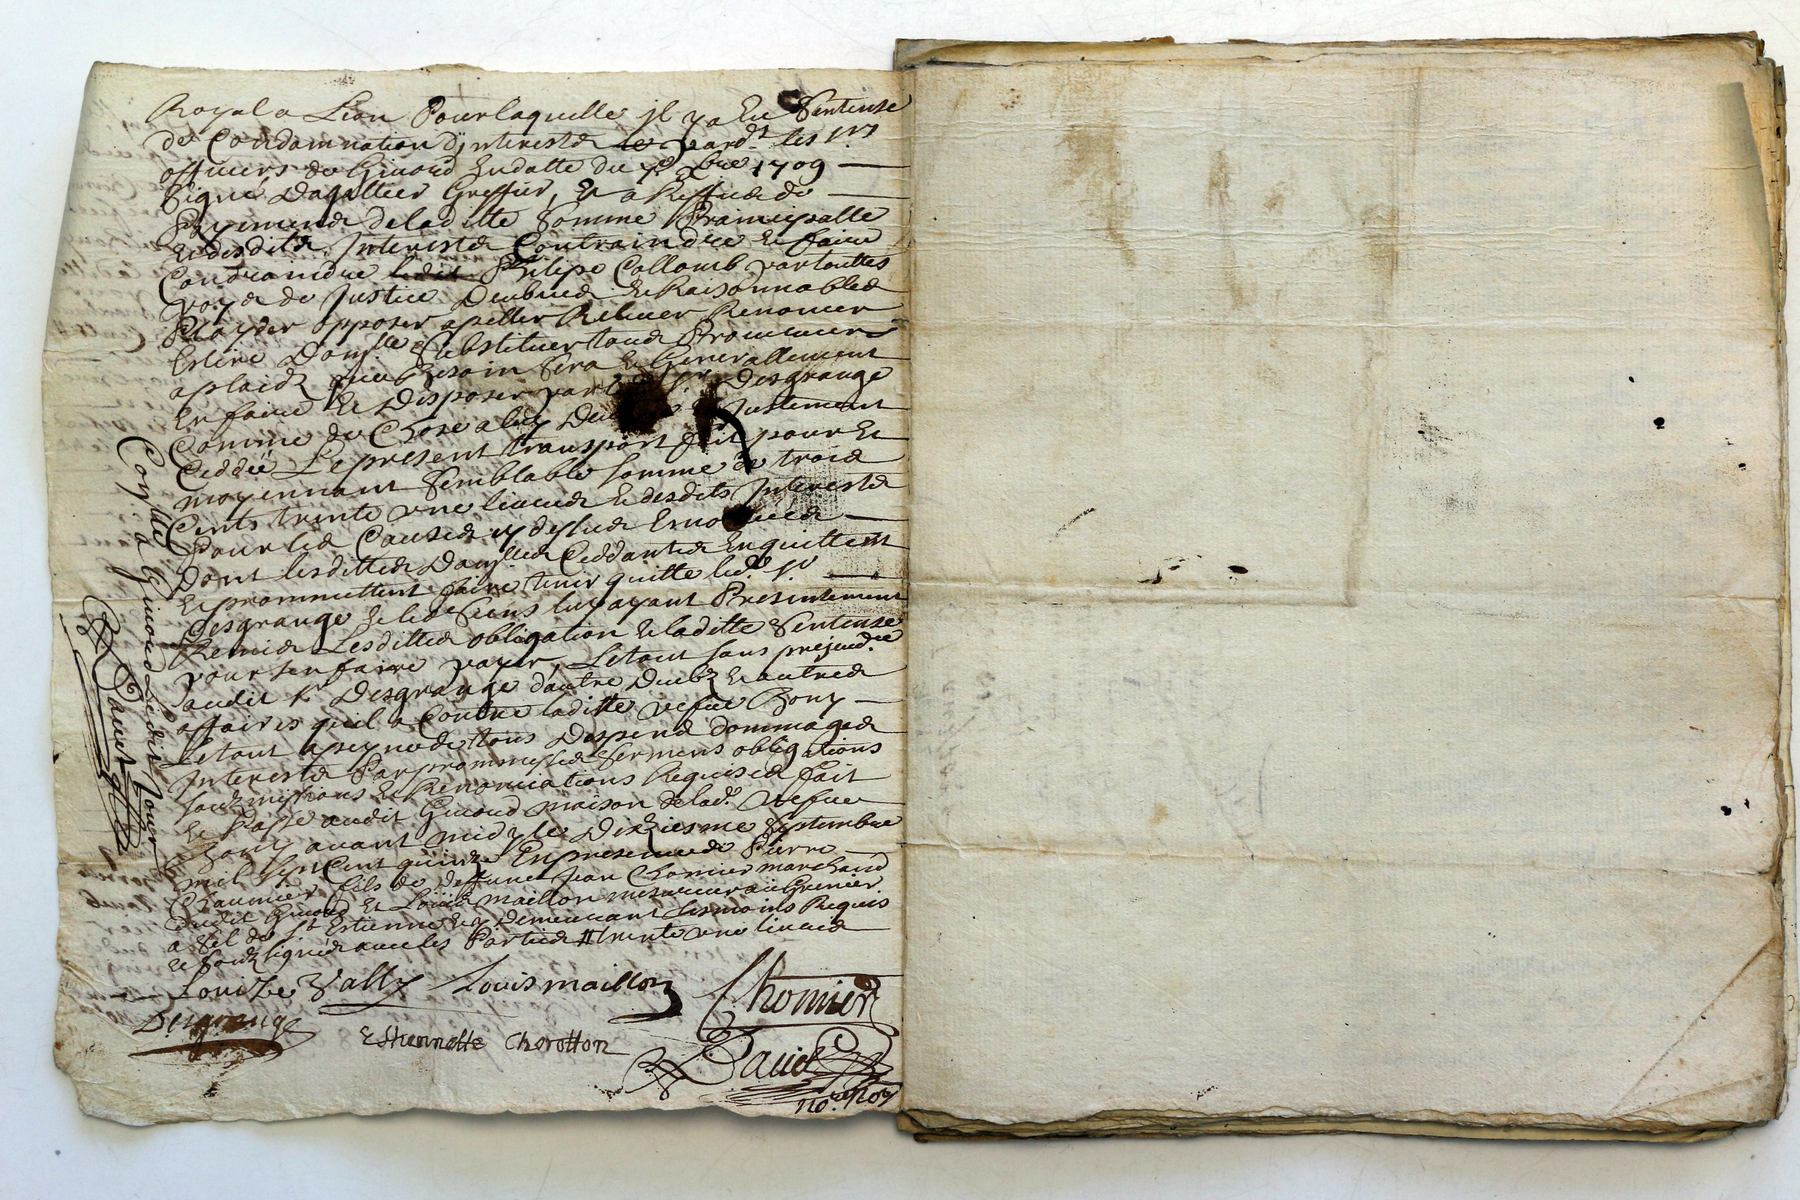 Royal a Lion Pour laquelle il y a Eu Sentense
de Condamnation d'interestz par dt les Srs
officiers de Givord En datte du 7e Xbre 1709
Signé Dagallier Greffier, Et a Reffus de
Payement de laditte Somme Principalle
Et desditz Interestz Contraindre et faire
Contraindre Philipe Collomb par touttes
voyes de Justice Deubues et Raisonnables
Playder opposer apeller Relever Renoncer
Eslire Domlle Substituer tous Procureurs
a plaidz que Besoin Sera Et Generallement
En faire Et Disposer par Sr Desgrange
Comme de Chose a luy Justement
Ceddée Le present transport fait pour Et
moyennant Semblable Somme de trois
Cents trente une livres Et desdits Interestz
Pour les Causes cy dessus
Dont lesdittes Damlles Ceddantes En quittent
Et promettent faire tenir quitte ledt Sr
Desgrange Et les Siens luy ayant Presentement
Remis Lesdittes obligation Et laditte Sentense
pour s'en faire payer, Le tout sans prejudce
audit Sr Desgrange d'autre Deubz Et autres
affaires qu'il a Contre laditte vefve Bony
Le tout a peyne de tous Despens dommages
Interestz Par promesses Sermens obligations
Soubzmissions Et Renonciations Requises fait
Et Passé audit Givord maison de lad. vefve
Bony avant midy le Dixiesme Septembre
mil Sept Cent quinze En presence de Pierre
Chaumier fils de deffunt Jean Chomier marchand
dudit Givord Et Louis maillon mesureur au Grenier
a Sel de St Estienne Et y Demeurant tesmoins Requis
Et Soubzsignés avec les Parties # trente une livres
Louize Vally Louis maillon Chomier
Desgrange
Estiennette Cherotton
David
nore Roy
Conllé a Givord Ledit Jour
David